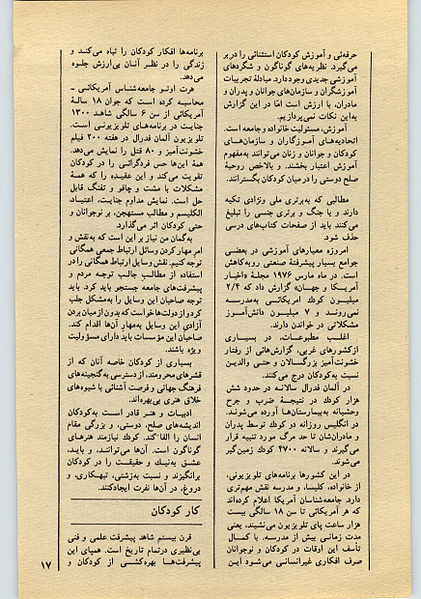 حرفه‌ئی و آموزش کودکان استثنائی را در بر
می‌گیرد. نظریه‌های گوناگون و شگردهای
آموزشی جدیدی وجود دارد. مبادلهٔ تجربیات
آموزشگران و سازمان‌های جوانان و پدران و
مادران، با ارزش است امّا در این گزارش
به‌این نکات نمی‌پردازیم.
آموزش، مسئولیت خانواده و جامعه است.
اتحادیه‌های آموزگاران و سازمان‌های
کودکان و جوانان و زنان می‌توانند به‌مفهوم
آموزش اعتبار بخشند. و بالاخص روحیهٔ
صلح دوستی را در میان کودکان بگسترانند.
مطالبی که به‌برتری ملی ونژادی تکیه
دارند و یا جنگ و برتری جنسی را تبلیغ
می‌کنند باید از صفحات کتاب‌های درسی
حذف شود.
امروزه معیارهای آموزشی در بعضی
جوامع بسیار پیشرفتهٔ صنعتی روبه‌کاهش
است. در ماه مارس ۱۹۷۶ مجلهٔ «اخبار
آمریکا و جهان» گزارش داد که ۲/۴
میلیون کودك امریکائی به‌مدرسه
نمی‌روند و ۷ میلیون دانش‌آموز
مشکلاتی در خواندن دارند.
اغلب مطبوعات، در بسیاری
ازکشورهای غربی، گزارش‌هائی از رفتار
خشونت‌آمیز بزرگسالان و حتی والدین
نسبت به‌کودکان درج می‌کنند.
در آلمان فدرال سالانه در حدود شش
هزار کودك در نتیجهٔ ضرب و جرح
وحشیانه به‌بیمارستان‌ها آورده می‌شوند.
در انگلیس روزانه دو کودك توسط پدران
و مادران‌شان تا حد مرگ مورد تنبیه قرار
می‌گیرند و سالانه ۴۷۰۰ کودك زمین‌گیر
می‌شوند.
در این کشورها برنامه‌های تلویزیونی،
از خانواده، کلیسا، و مدرسه نقش مهم‌تری
دارد. جامعه‌شناسان آمریکا اعلام کرده‌اند
که هر آمریکائی تا سن ۱۸ سالگی بیست
هزار ساعت پای تلویزیون می‌نشیند، یعنی
مدت زمانی بیش از مدرسه. با کمال
تأسف این اوقات در کودکان و نوجوانان
صرف افکاری غیرانسانی می‌شود این
برنامه‌ها افکار کودکان را تباه می‌کند و
زندگی را در نظر آنان بی‌ارزش جلوه
می‌دهد.
هرت اوتو جامعه‌شناس آمریکائی -
محاسبه کرده است که جوان ۱۸ سالهٔ
آمریکائی از سن ۶ سالگی شاهد ۱۳۰۰
جنایت در برنامه‌های تلویزیونی است.
تلویزیون آلمان فدرال در هفته ۲۰۰ فیلم
خشونت‌آمیز و ۸۰ قتل را نمایش می‌دهد.
همهٔ این‌ها حس فردگرائی را در کودکان
تقویت می‌کند و این عقیده را که همهٔ
مشکلات با مشت و چاقو و تفنگ قابل
حل است. نمایش مداوم جنایت، اعتیاد،
الکلیسم و مطالب مستهجن، بر نوجوانان و
حتی کودکان اثر می‌گذارد.
به‌گمان من نیاز بر این است که به‌نقش و
امر مهار کردن وسائل ارتباط جمعی همگانی
توجه کنیم. نقش وسایل ارتباط همگانی را در
استفاده از مطالب جالب توجه مردم و
پیشرفت‌های جامعه جستجو باید کرد. باید
توجه صاحبان این وسایل را به‌مشکل جلب
کرد و از دولت‌ها خواست که بدون از میان بردن
آزادی این وسایل به‌مهار آن‌ها اقدام کند.
صاحبان این مؤسسات باید دارای مسؤولیت
ویژه باشند.
بسیاری از کودکان خاصه آنان که از
قشرهای محرومند، از دسترسی به‌گنجینه‌های
فرهنگ جهانی و فرصت آشنائی با شیوه‌های
خلاق هنری بی‌بهره‌اند.
ادبیات و هنر قادر است به‌کودکان
اندیشه‌های صلح، دوستی، و بزرگی مقام
انسان را القا کند. کودك نیازمند هنرهای
گوناگون است. آن‌ها می‌توانند، و باید،
عشق به‌نیك و حقیقت را در کودکان
برانگیزند و نسبت به‌زشتی، تبهکاری، و
دروغ، در آن‌ها نفرت ایجادکنند.
کار کودکان
قرن بیستم شاهد پیشرفت علمی و فنی
بی‌نظیری درتمام تاریخ است. همپای این
پیشرفت‌ها بهره‌کشی از کودکان و
۱۷